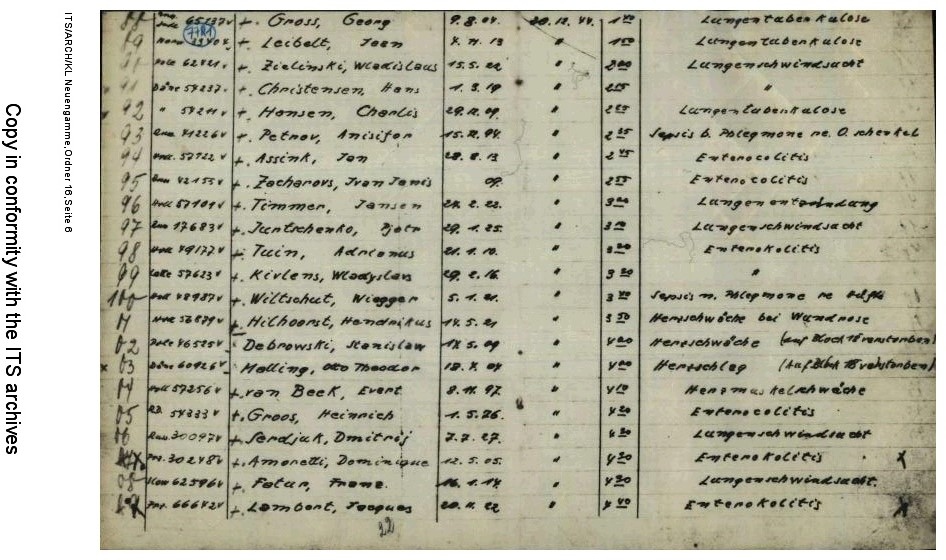 Copy in conformity with the ITS archives
ITS/ARCH/KL Neuengamme, Ordner 16, Seite 6
7781
65137 v +. Gross, Georg 9.8.04. 20.12.44. 1 40 Lungentuberkulose
89 v +. Leibelt, Jean 4. 11. 13 " 1 50 Lungentuberkulose
62421 v +. Zielinski, Wladislaus 15.5.22 " 2 00 Lungenschwindsucht
Däne 54237 v +. Christensen, Hans 1. 3. 19 " "
92 " 54211 v +. Hansen, Charlis " Lungentuberkulose
93 41226 v +. Petrov, Anisifor " Sepsis b. Phlegmone re. O. schenkel
94 +. Assink, Jan 28. 8. 13 " 2 45 Enterocolitis
95 42153 v +. Zacharovs, Ivan Janis 09. " 2 55 Enterocolitis
96 Holl 57101 v +. Timmer, Jansen 24. 2. 22. " 3 00 Lungenentzündung
97 Russ 17683 v +. Juntschenko, Pjotr 29. 1. 25. " Lungenschwindsucht
98 49177 v +. Tuin, Adrianus 21. 1. 10. " 3 20 Enterokolitis
99 57623 v +. Kivlens, Wladyslavs 29. 2. 16. " 3 30 "
100 Holl 48987 v +. Wiltschut, Wiegger 5. 1. 21. " 3 40 Sepsis n. Phlegmone re
56879 v +. Hilhoorst, Hendrikus 14. 5. 21 " 3 50 Herzschwäche bei Wundrose
02 Pole 46525 v Debrowski, Stanislaw 14. 5. 09 " 4 00 Herzschwäche (auf Block verstorben)
x 03 Däne 60926 v Malling, Otto Theodor 18. 4. 04 " 4 00 Herzschlag (Auf Block verstorben)
04 Holl 57256 v +. van Beek, Evert 8. 11. 97. " 4 10 Herzmuskelschwäche
05 R.D. 54333 v +. Groos, Heinrich 1. 5. 26. " 4 20 Enterocolitis
06 Russ 30097 v +. Serdjuk, Dmitrij 7. 7. 27. " 4 30 Lungenschwindsucht
30248 v +. Amoretti, Dominique 12. 5. 05. " 4 30 Enterokolitis x
08 62596 v +. Fatur, Franz. 16. 1. 14 " 4 30 Lungenschwindsucht.
66642 v +. Lambert, Jacques 20. 11. 22 " 4 40 Enterokolitis x
22